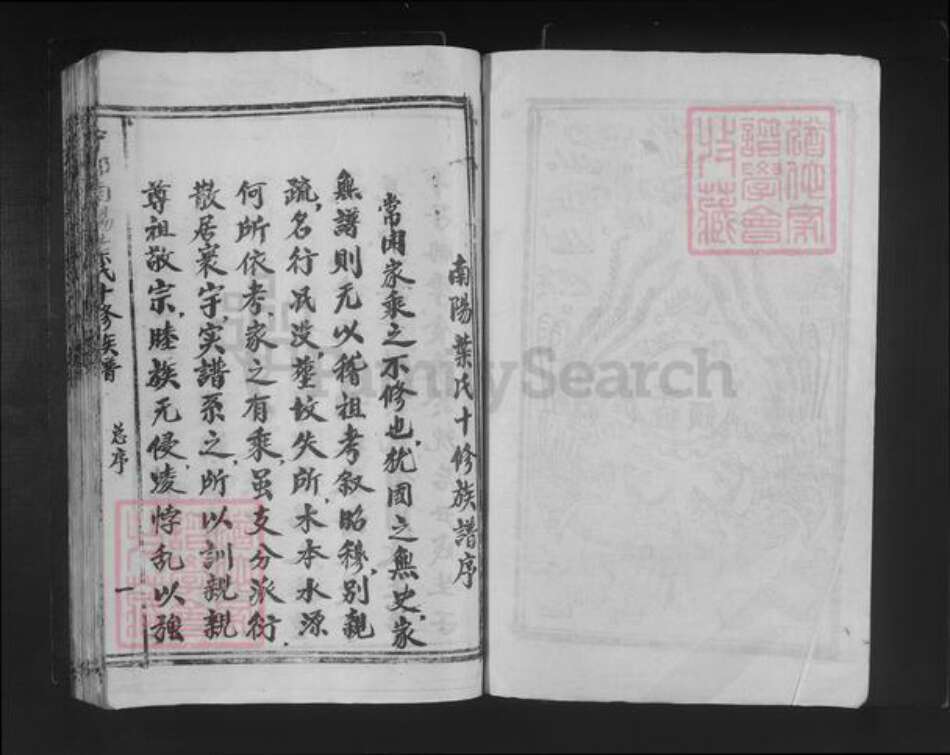 南陽葉氏十修族譜序
常闻家乘之不修也,犹国之無史,家
無譜則无以稽祖考叙昭穆,别親
疏,名行泯没,塋坟失所,水本水源
何所依考,家之有乘,虽支分派衍,
散居寰宇,实譜系之,所以訓親親
尊祖敬宗,睦族无侵,凌悖乱以強
氏十修族普
总序
一
譜學會
收藏
FamilySearch